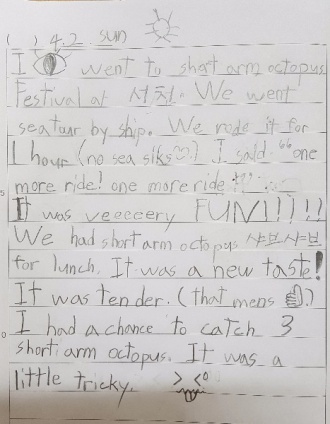 ( ) 4.2 sun
I went to short arm octopus
Festival at 서천. We went
seatuar by ship. We rode it for
1 hour (no sea siks) I said "one
more ride! one more ride!"
It was veeeeery FUN!!!!!
We had short arm octopus 샤브샤브
for lunch. It was a new taste!
It was tender. (that mens 👍)
I had a chance to catch 3
short arm octopus. It was a
little tricky. > <